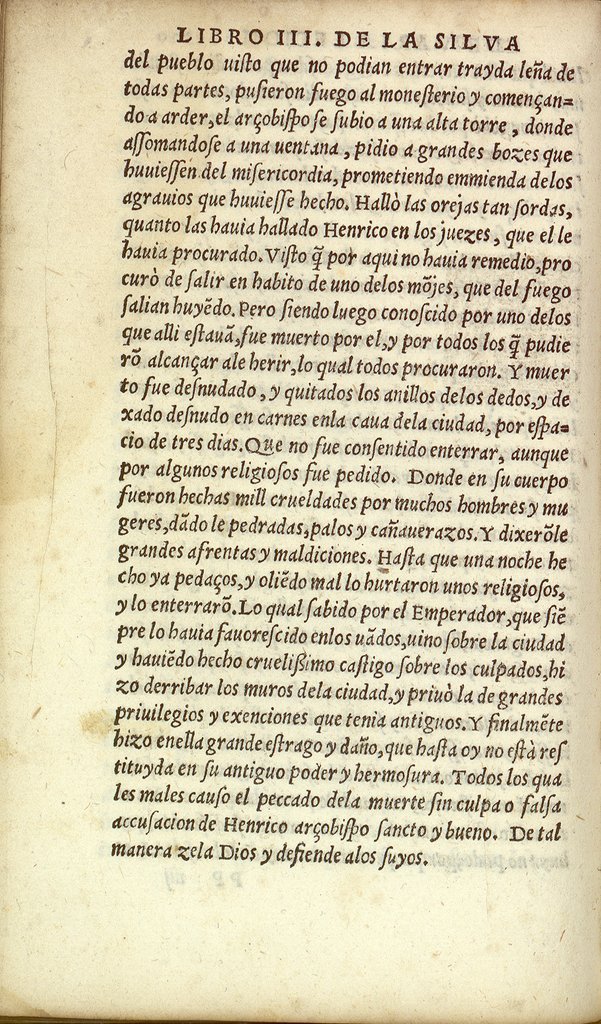 LIBRO III. DE LA SILVA
del pueblo uisto que no podian entrar trayda leña de
todas partes, pusieron fuego al monesterio y començan=
do a arder, el arçobispo se subio a una alta torre, donde
assomandose a una uentana, pidio a grandes bozes que
huuiessen del misericordia, prometiendo emmienda delos
agrauios que huuiesse hecho. Hallò las orejas tan sordas,
quanto las hauia hallado Henrico en los juezes, que el le
hauia procurado. Visto q̃ por aqui no hauia remedio, pro
curò de salir en habito de uno delos mõjes, que del fuego
salian huyẽdo. Pero siendo luego conoscido por uno delos
que alli estauã, fue muerto por el, y por todos los q̃ pudie
rõ alcançar ale herir, lo qual todos procuraron. Y muer
to fue desnudado, y quitados los anillos delos dedos, y de
xado desnudo en carnes enla caua dela ciudad, por espa=
cio de tres dias. Que no fue consentido enterrar, aunque
por algunos religiosos fue pedido. Donde en su cuerpo
fueron hechas mill crueldades por muchos hombres y mu
geres, dãdo le pedradas, palos y cañauerazos. Y dixerõle
grandes afrentas y maldiciones. Hasta que una noche he
cho ya pedaços, y oliẽdo mal lo hurtaron unos religiosos,
y lo enterrarõ. Lo qual sabido por el Emperador, que siẽ
pre lo hauia fauorescido enlos uãdos, uino sobre la ciudad
y hauiẽdo hecho cruelißimo castigo sobre los culpados, hi
zo derribar los muros dela ciudad, y priuò la de grandes
priuilegios y exenciones que tenia antiguos. Y finalmẽte
hizo enella grande estrago y daño, que hasta oy no està res
tituyda en su antiguo poder y hermosura. Todos los qua
les males causo el peccado dela muerte sin culpa o falsa
accusacion de Henrico arçobispo sancto y bueno. De tal
manera zela Dios y defiende alos suyos.